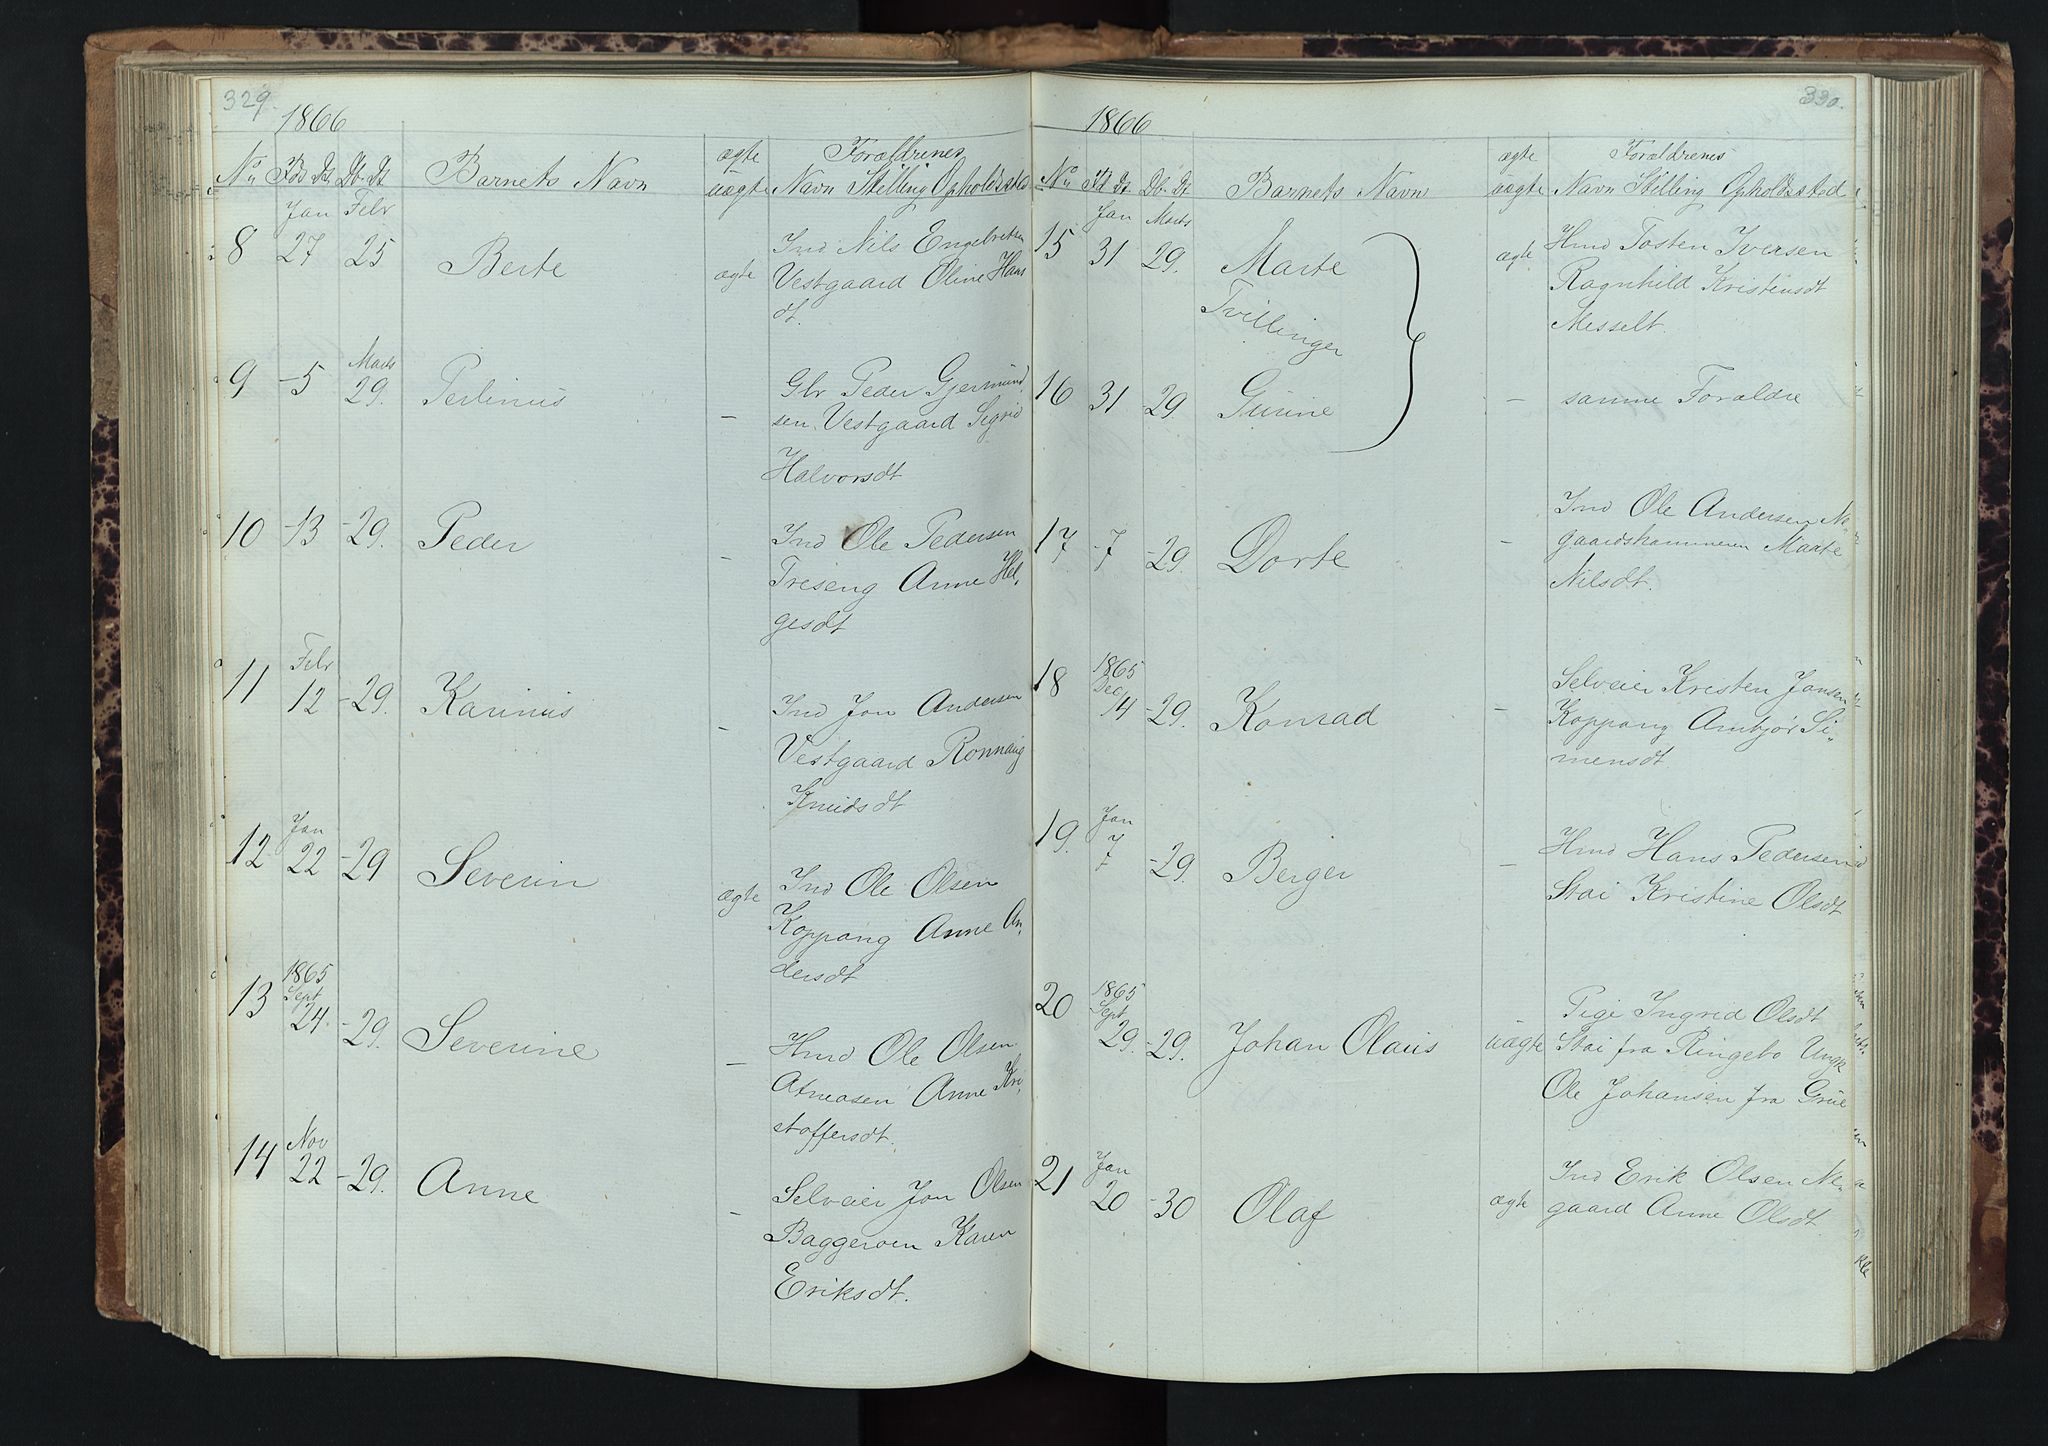 329.
1866
No Fds Dt. Db. Dt. Barnets Navn ægte uægte Forældrenes Navn Stilling Opholdssted
Jan Febr
8 27 25 Berte ægte Ind Nils Engebretsen
Vestgaard Oline Hans
dt.
Marts
9 -5 29. Perlinus - Gbr Peder Gjermund
sen Vestgaard Sigrid
Halvorsdt
10 -13 -29. Peder - Ind Ole Pedersen
Treseng Anne Hel,
gesdt
Febr
11 12 -29. Karinus - Ind Jon Andersen
Vestgaard Ronnaug
Knudsdt
Jan
12 22 -29 Severin ægte Ind Ole Olsen
Koppang Anne An,
dersdt
1865
Sept
13 24. -29. Severine - Hmd Ole Olsen
Atneosen Anne Kri,
stoffersdt.
Nov
14 22 -29. Anne - Selveier Jon Olsen
Baggeroen Karen
Eriksdt.
330.
1866
No Fd Dt. Db. Dt. Barnets Navn ægte uægte Forældrenes Navn Stilling Opholdssted
Jan Marts
15 31 29. Marte ægte Hmd Tosten Iversen
Ragnhild Kristensdt
Messelt.
Tvillinger
16 31 -29. Gurine - samme Forældre
17 -7 -29. Dorte - Ind Ole Andersen Ne-
gaardskammeren Marte
Nilsdt.
1865
Dec
18 14 -29. Konrad - Selveier Kristen Jonsen
Koppang Ambjør Si-
mensdt.
Jan
19. 7 -29. Berger - Hmd Hans Pedersen
Stai Kristine Olsdt
1865
Sept
20 29. -29. Johan Olaus uægte Pige Ingrid Olsdt
Stai fra Ringebo Ungk
Ole Johansen fra Grue
Jan
21 20 -30 Olaf ægte Ind Erik Olsen Ne-
gaard Anne Olsdt.